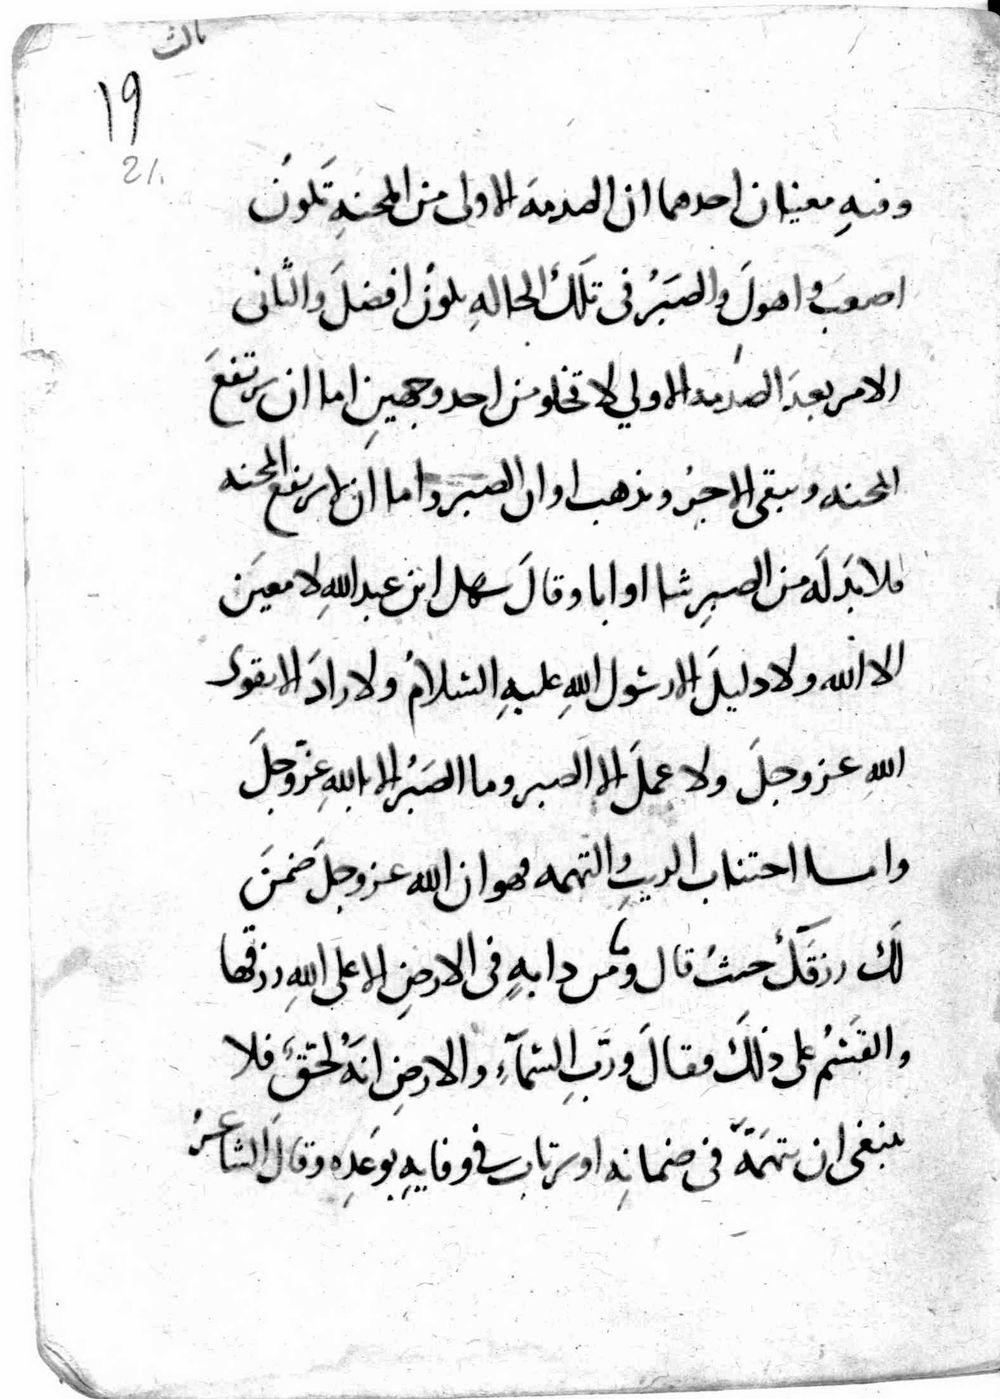 ثالث
١٩
21.
وفيهِ معنيان احدهما ان الصدمة الاولى من المحنةِ تَكونُ
اصعبَ واهولَ والصَبَرُ في تلكَ الحالهِ يكونُ افضلَ والثانى
الامر بعدَ الصَدمة الاولي لا تخلو من احد وجهينِ اما ان يرتفعَ
المحنه ويبقى الاجرُ ويذهب اوان الصبر واما ان لا يرتفع المحنه
فلا بدَ لَه من الصبرِ شا او ابا وقالَ سهل ابن عبد اللهِ لا معينَ
الا الله ولا دليلَ الا رسُول اللهِ عليهِ السَلامُ ولا زادَ الا تقوى
اللهِ عز وجلَ ولا عملَ الا الصبر وما الصَبَرُ الا باللهِ عزَّ وجلَ
واما اجتناب الريبِ والتهمه فهو ان الله عز وجلَ ضمنَ
لَكَ رزقَكَ حيثُ قال وما من دابهٍ في الارضِ الا على اللهِ رزقها
والقَسَمُ على ذلكَ فقالَ وربِ السَمآءِ والارضِ انهُ لحَقٌ فلا
ينبغى ان تتهمَهَ في ضمانهِ او يرتاب في وفايهِ بوَعدِه وقالَ الشاعرُ